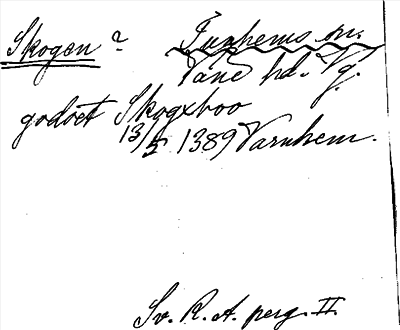 Skogen? Tunhems sn.
Väne hd. Vg.
godset Skogxboo
13/5 1389 Varnhem.
Sv. R. A. perg. II